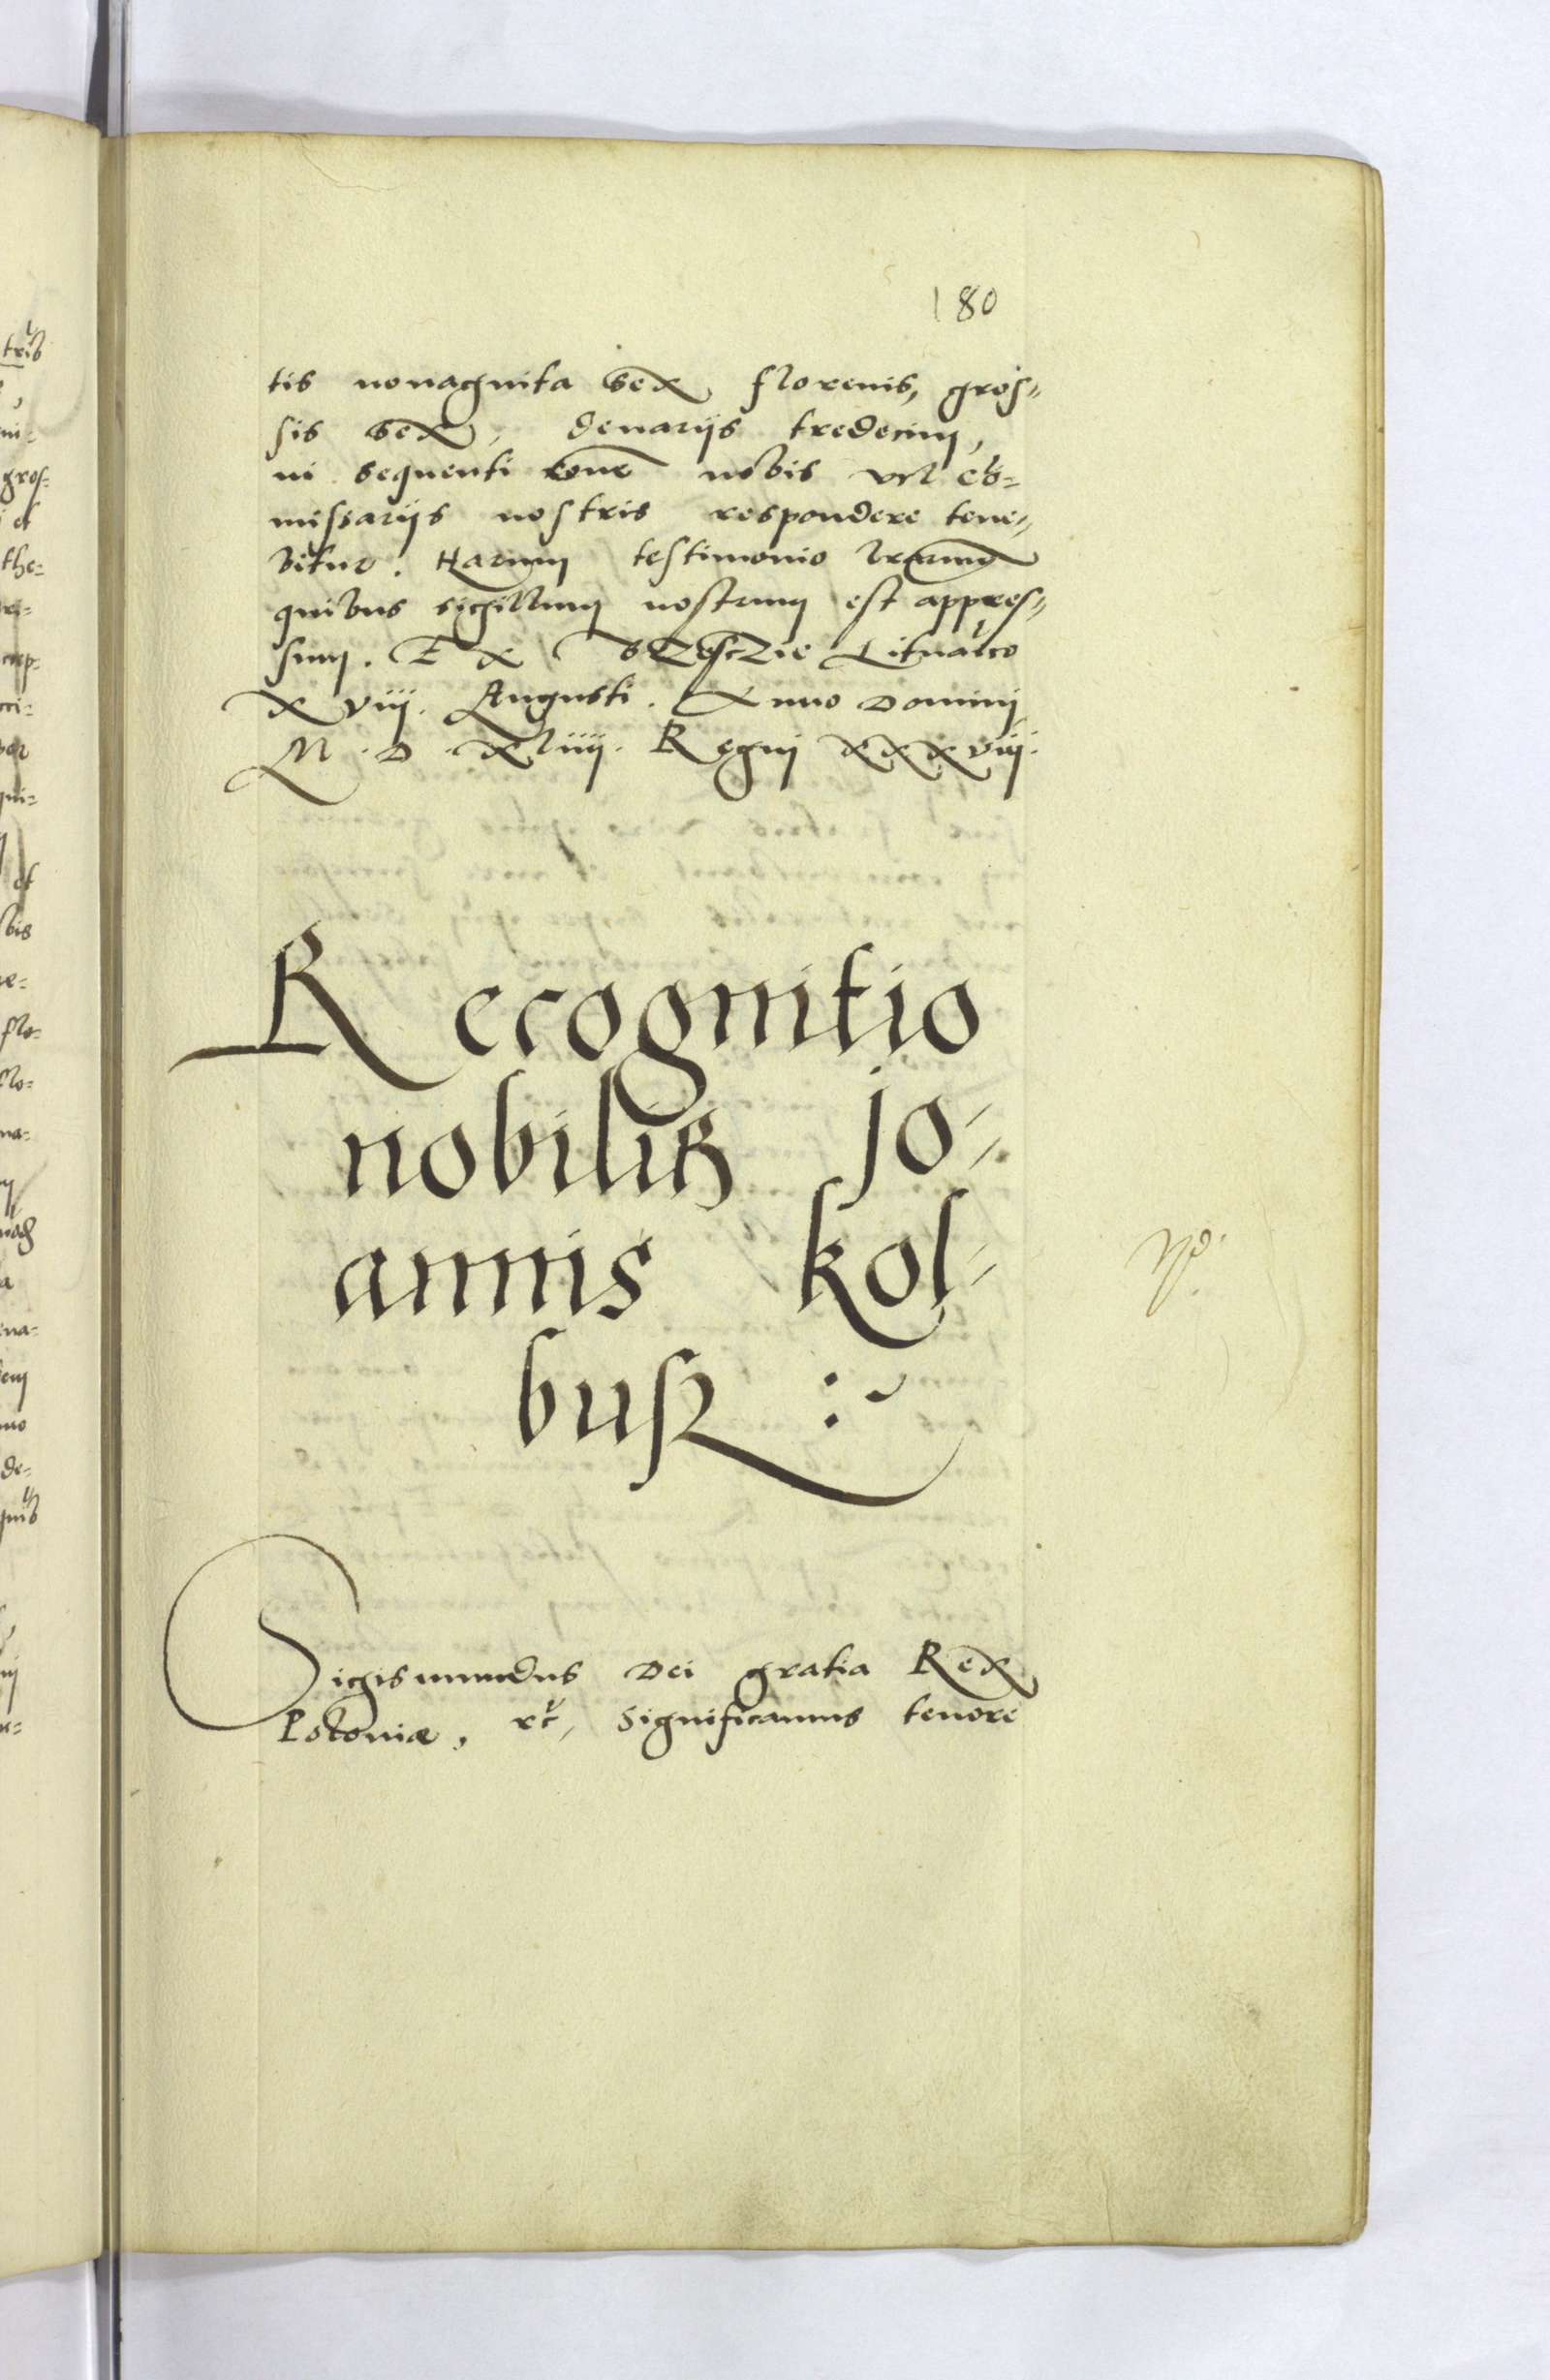 180
tis nonaginta sex florenis, gros=
sis sex, denarijs tredecim,
in sequenti rone nobis vel co=
missarijs nostris respondere tene=
bitur. Harum testimonio lrarum
quibus sigillum nostrum est appres=
sum. Ex Brzesczie Lituaico
xviij. Augusti. Anno Domini
M.D.xliiij. Regni xxxviij.
Recognitio
nobilis Jo=
annis Kol=
busz :~
Sigismundus Dei gratia Rex
Poloniæ, &c, Significamus tenore